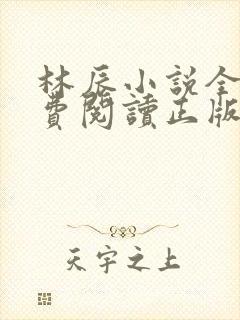 林辰小説全
費閱讀正版
天宇之上